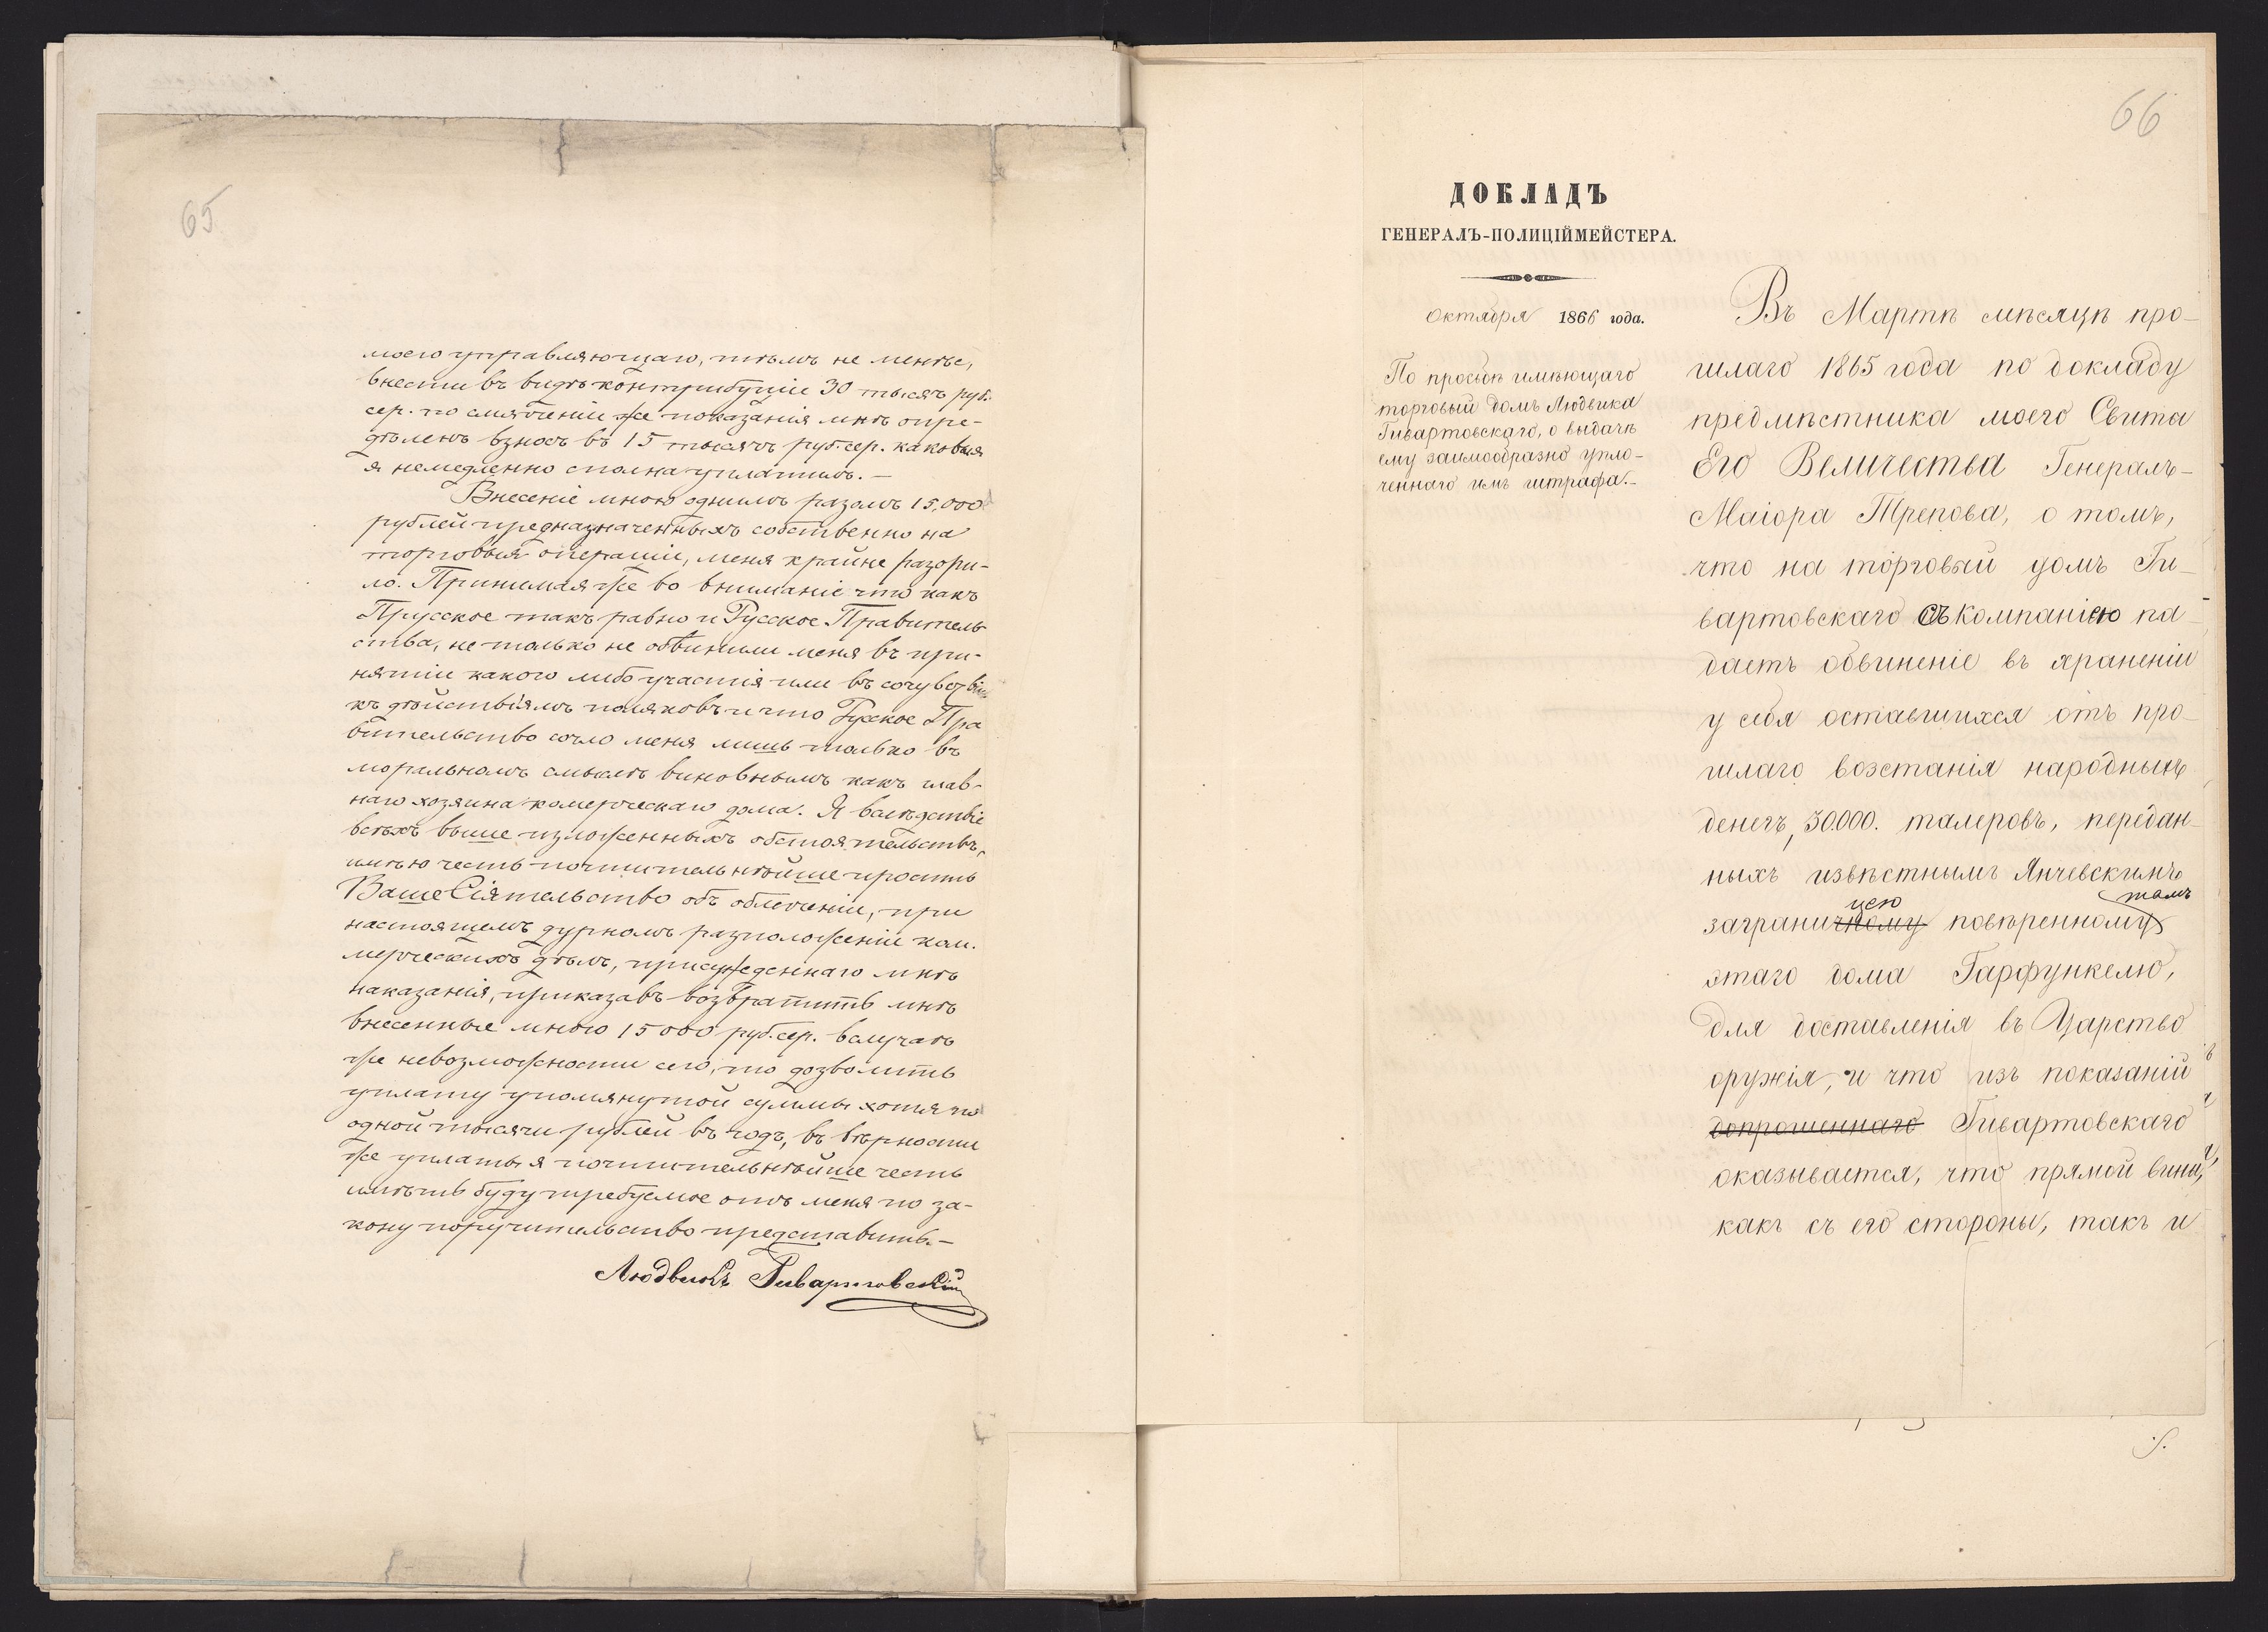 65
моего управляющаго, тѣмъ не менѣе,
внести въ видѣ контрибуціи 30 тысячъ руб.
сер. по смягченіи же показанія мнѣ опре-
дѣленъ взносъ въ 15 тысячъ руб. сер. каковыя
я немедленно сполна уплатилъ. —
Внесеніе мною однимъ разомъ 15,000
рублей предназначенныхъ собственно на
торговыя операціи, меня крайне разори-
ло. Принимая же во вниманіе что какъ
Прусское такъ равно и Русское Правитель
ства, не только не обвинили меня въ при-
нятіи какого либо участія или въ сочувствіи
къ дѣйствіямъ поляковъ и что Русское Пра
вительство сочло меня лишь только въ
моральномъ смыслѣ виновнымъ какъ глав-
наго хозяина комерческаго дома. Я вслѣдствіе
всѣхъ выше изложенныхъ обстоятельствъ,
имѣю честь почтительнѣйше просить
Ваше Сіятельство объ облегченіи, при
настоящемъ дурномъ разположеніи ком-
мерческихъ дѣлъ, присужденнаго мнѣ
наказанія, приказавъ возвратить мнѣ
внесенные мною 15000 руб. сер. вслучаѣ
же невозможности сего, то дозволить
уплату упомянутой суммы хотя по
одной тысячи рублей въ годъ, въ вѣрности
же уплаты я почтительнѣйше честь
имѣть буду требуемое отъ меня по за-
кону поручительство представить. —
Людвикъ Гивартовскій
66
ДОКЛАДЪ
ГЕНЕРАЛЪ-ПОЛИЦІЙМЕЙСТЕРА.
Октября 1866 года.
По просьбѣ имѣющаго
торговый домъ Людвика
Гивартовскаго, о выдачѣ
ему заимообразно упла-
ченнаго имъ штрафа. —
Въ Мартѣ мѣсяцѣ про-
шлаго 1865 года по докладу
предмѣстника моего Свиты
Его Величества Генералъ-
Маіора Трепова, о томъ,
что на торговый домъ Ги-
вартовскаго съ компаніею па-
даетъ обвиненіе въ храненіи
у себя оставшихся отъ про-
шлаго возстанія народныхъ
денегъ, 30.000. талеровъ, передан-
ныхъ извѣстнымъ Янчевскимъ
цею тамъ
заграничному повѣренному
этаго дома Гарфункелю,
для доставленія въ Царство
оружія, и что изъ показаній
допрошеннаго Гивартовскаго
оказывается, что прямой вины,
какъ съ его стороны, такъ и